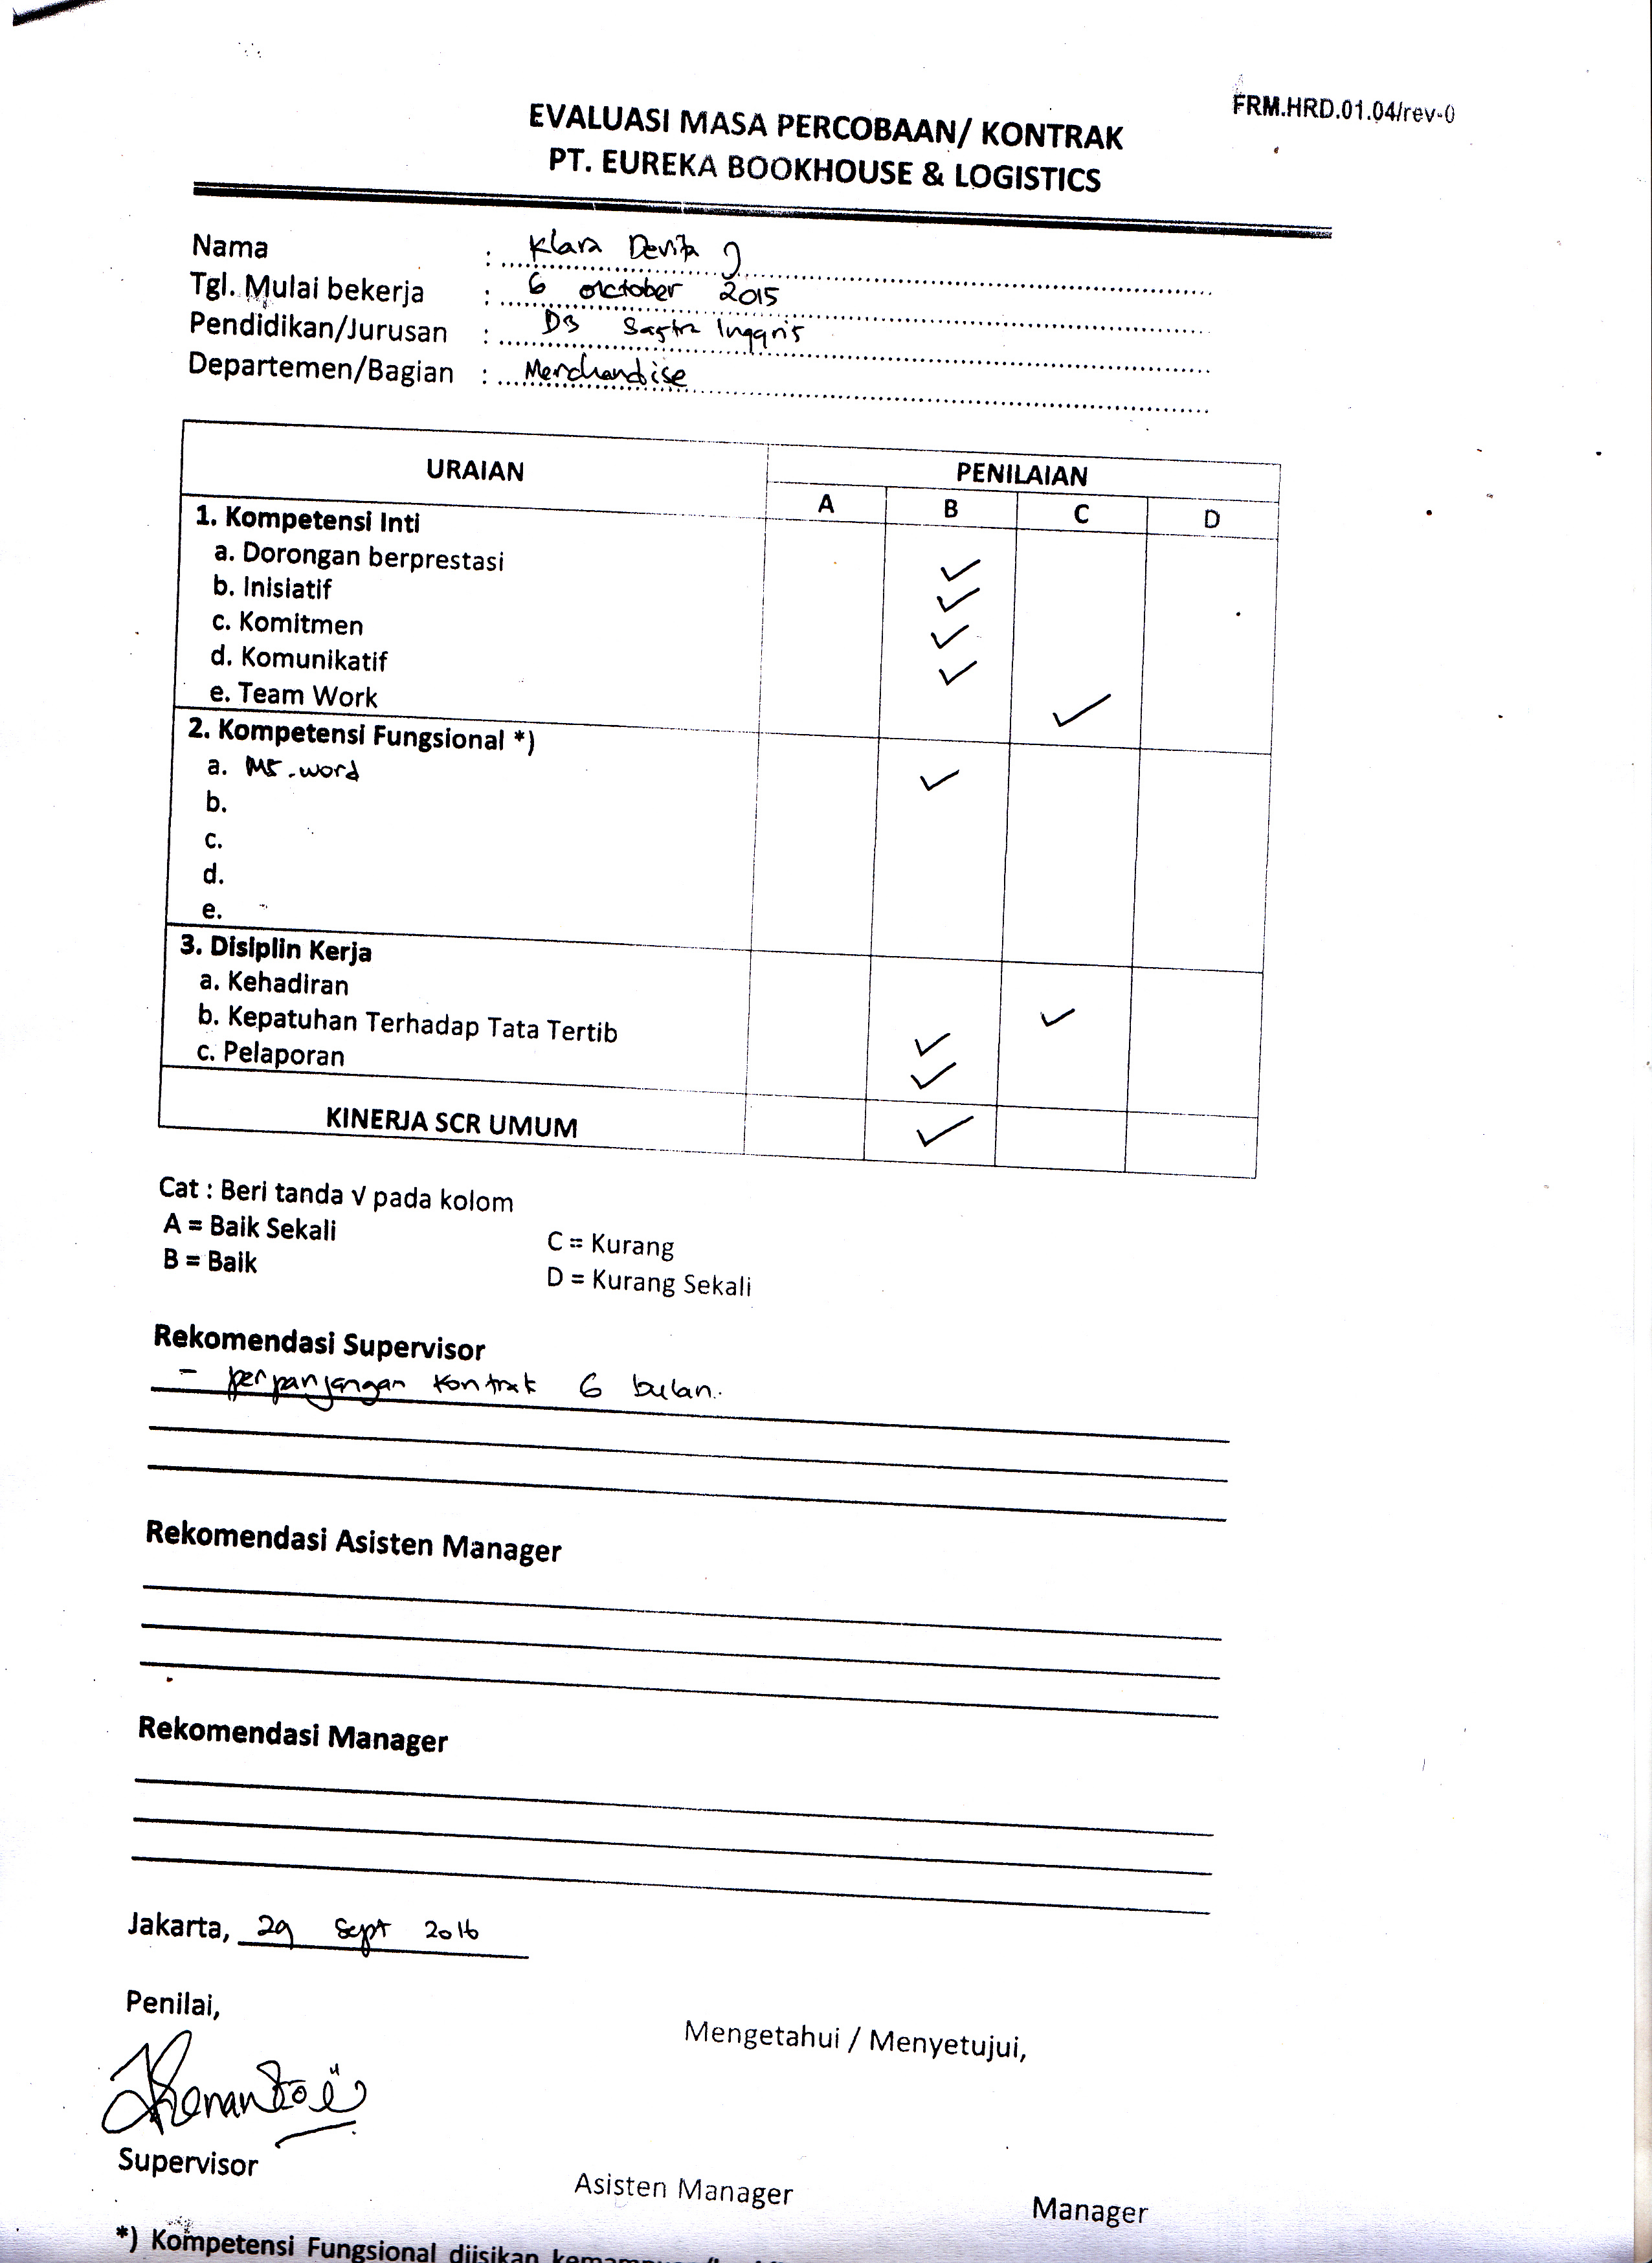 FRM.HRD.01.04/rev-0
EVALUASI MASA PERCOBAAN/ KONTRAK
PT. EUREKA BOOKHOUSE & LOGISTICS
Nama : Klara Devita J
Tgl. Mulai bekerja : 6 october 2015
Pendidikan/Jurusan : D3 Sastra Inggris
Departemen/Bagian : Merchandise
URAIAN PENILAIAN
A B C D
1. Kompetensi Inti
a. Dorongan berprestasi ✓
b. Inisiatif ✓
c. Komitmen ✓
d. Komunikatif ✓
e. Team Work ✓
2. Kompetensi Fungsional *)
a. MS.word ✓
b.
c.
d.
e.
3. Disiplin Kerja
a. Kehadiran ✓
b. Kepatuhan Terhadap Tata Tertib ✓
c. Pelaporan ✓
KINERJA SCR UMUM ✓
Cat : Beri tanda √ pada kolom
A = Baik Sekali C = Kurang
B = Baik D = Kurang Sekali
Rekomendasi Supervisor
- perpanjangan kontrak 6 bulan.
Rekomendasi Asisten Manager
Rekomendasi Manager
Jakarta, 29 Sept 2016
Penilai, Mengetahui / Menyetujui,
Supervisor Asisten Manager Manager
*) Kompetensi Fungsional diisikan